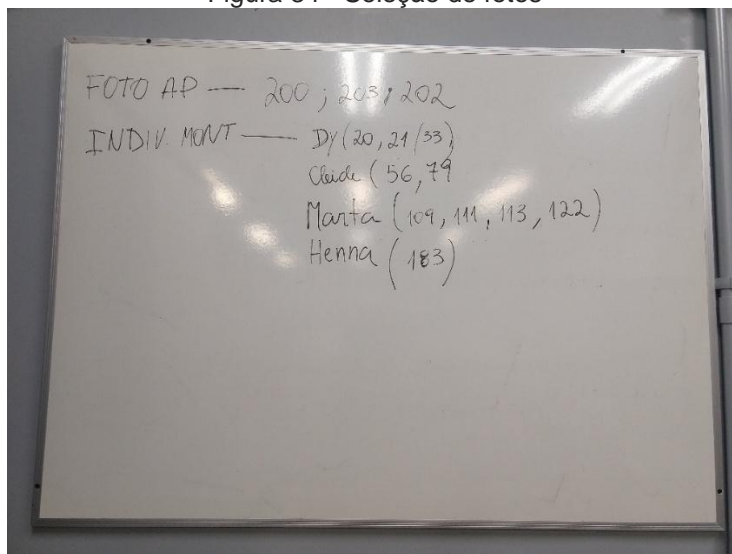 FOTO AP — 200 ; 203 ; 202
INDIV. MONT — Dy (20, 21/33)
Cleide (56, 79
Marta (109, 111, 113, 122)
Henna (183)